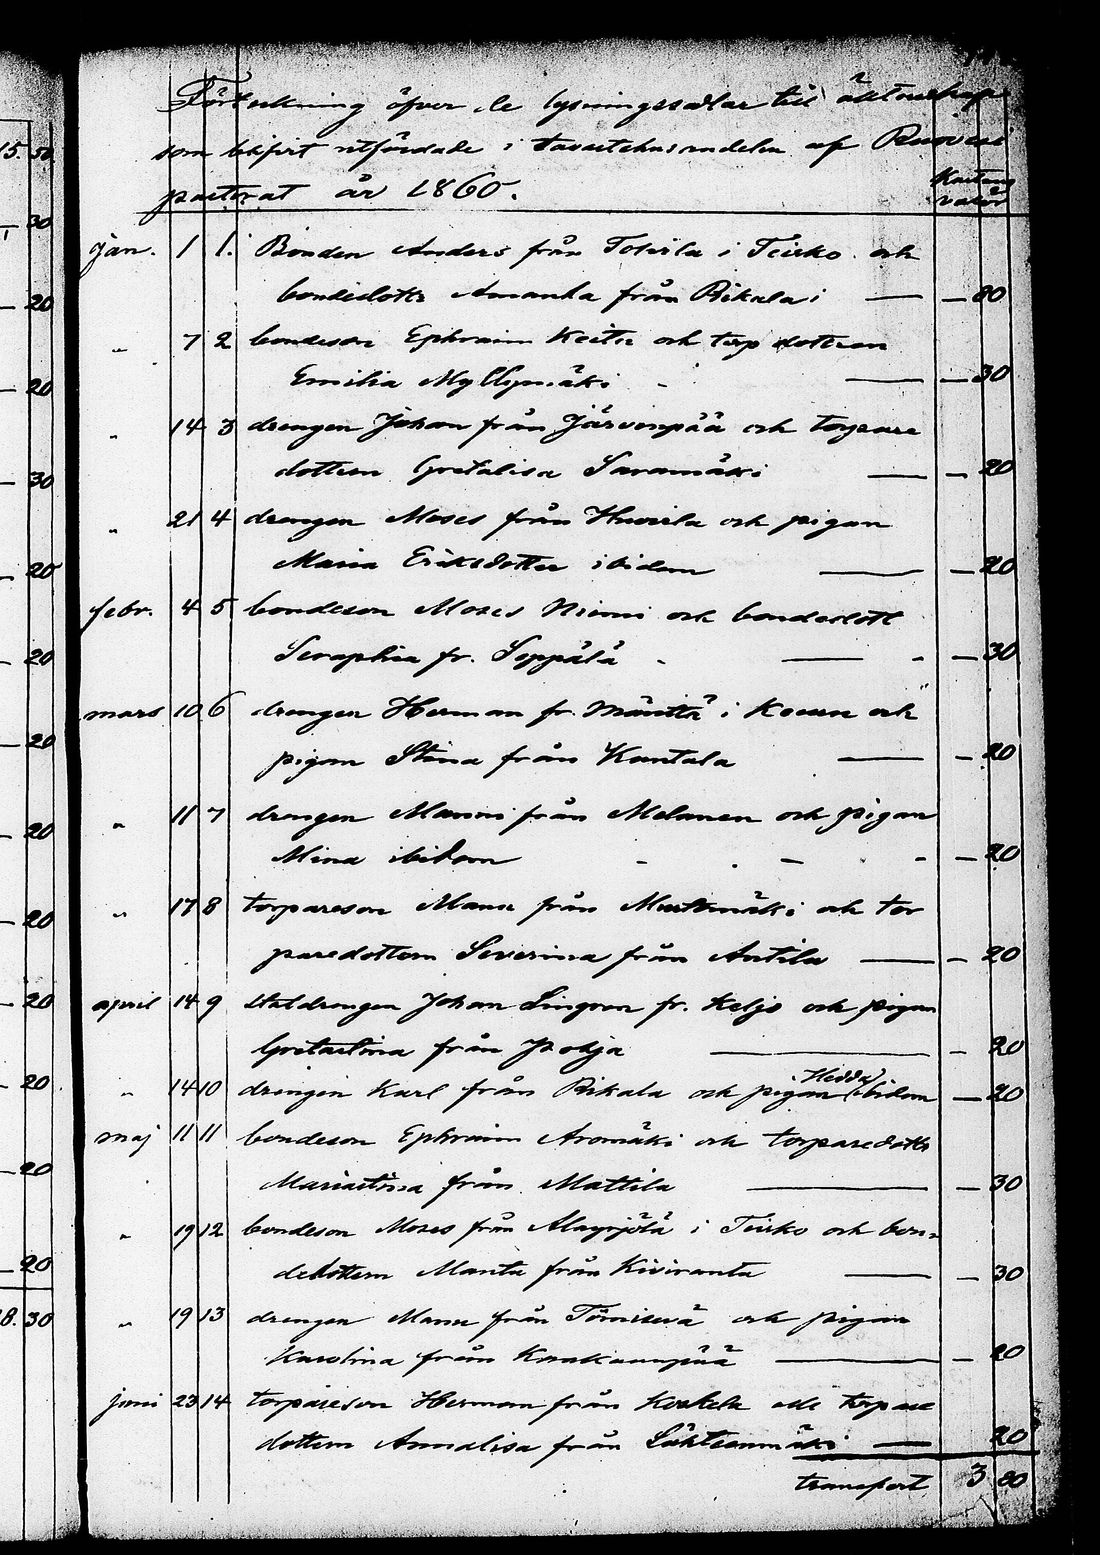 Förteckning öfver de lysningssedlar till äktenskap
som blifvit utfärdade i Tavastehusandelen af Ruovesi
pastorat år 1860.
Karta
valör
15. 50
30
20
20
30
20
20
20
20
20
20
20
20
20
18. 30
jan. 1 1. Bonden Anders från Toivila i Teisko och
bondedottr Amanda från Pikala i — — 80
" 7 2 bondeson Ephraim Keitu och torp dottren
Emilia Myllymäki - — — 30
" 14 3 drengen Johan från Järvenpää och torpare
dottern Gretalisa Saranmäki — — 20
" 21 4 drengen Moses från Huovila och pigan
Maria Eriksdotter ibidem — — 20
febr. 4 5 bondeson Moses Niemi och bondedott
Seraphia fr. Seppälä - — - — 30
mars 10 6 drengen Herman fr. Mänttä i Keuru och
pigan Stina från Kantala — — 20
" 11 7 drengen Manni från Melanen och pigan
Mina ibidem - - - - — 20
" 17 8 torpareson Manu från Mustamäki och tor
paredottern Severina från Antila — — 20
april 14 9 staldrengen Johan Lingren fr. Keljo och pigan
Gretastina från Pohja — — 20
Hedda
" 14 10 drengen Karl från Pikala och pigan ibidem — 20
maj 11 11 bondeson Ephraim Aromäki och torparedottr
Mariastina från Mattila — — 30
" 19 12 bondeson Moses från Alaypölä i Teisko och bon-
dedottern Manta från Kiviranta — — 30
" 19 13 drengen Manu från och pigan
Karolina från — — 20
juni 23 14 torpareson Herman från Kerkela och torpare
dottern Annalisa från Lähteenmäki — 20
transport 3 80